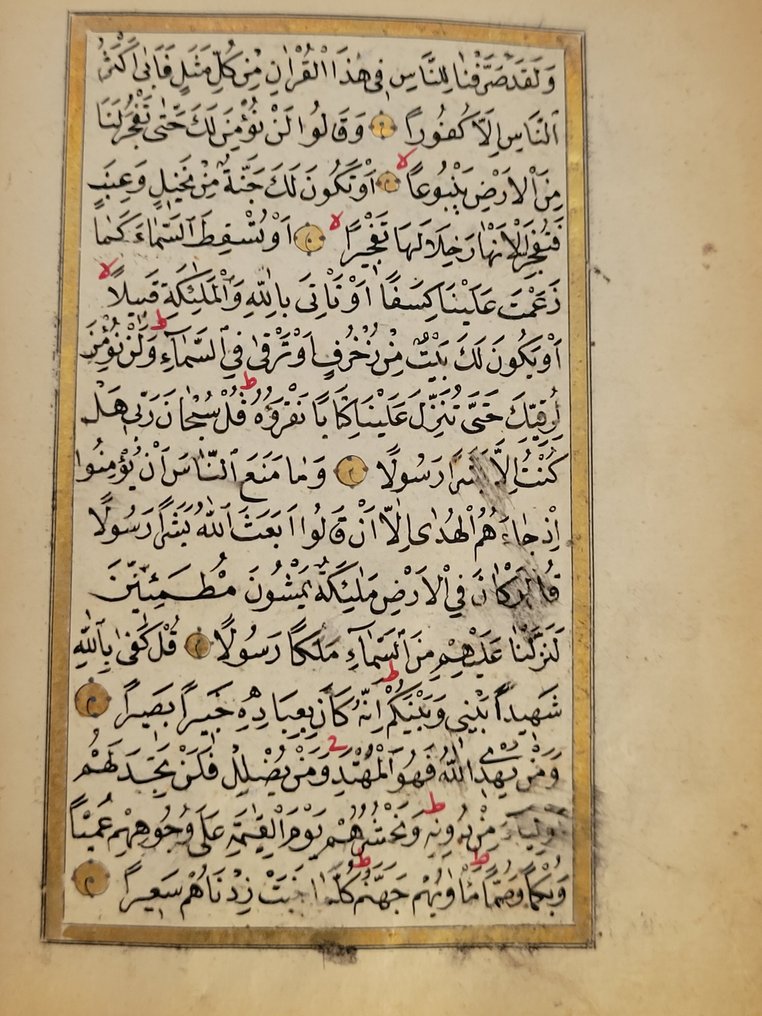 وَلَقَدْ صَرَّفْنَا لِلنَّاسِ فِي هٰذَا الْقُرْاٰنِ مِنْ كُلِّ مَثَلٍ فَاَبٰى اَكْثَرُ
النَّاسِ اِلَّا كُفُوراً وَقَالُوا لَنْ نُؤْمِنَ لَكَ حَتّٰى تَفْجُرَ لَنَا
مِنَ الْاَرْضِ يَنْبُوعاً لا اَوْ تَكُونَ لَكَ جَنَّةٌ مِنْ نَخِيلٍ وَعِنَبٍ
فَتُفَجِّرَ الْاَنْهَارَ خِلَالَهَا تَفْجِيراً لا اَوْ تُسْقِطَ السَّمَاءَ كَمَا
زَعَمْتَ عَلَيْنَا كِسَفًا اَوْ تَاْتِىَ بِاللّٰهِ وَالْمَلٰئِكَةِ قَبِيلاً لا
اَوْ يَكُونَ لَكَ بَيْتٌ مِنْ زُخْرُفٍ اَوْ تَرْقٰى فِي السَّمَاءِ ط وَلَنْ نُؤْمِنَ
لِرُقِيِّكَ حَتّٰى تُنَزِّلَ عَلَيْنَا كِتَابًا نَقْرَؤُهُ ط قُلْ سُبْحَانَ رَبِّى هَلْ
كُنْتُ اِلَّا بَشَراً رَسُولًا وَمَا مَنَعَ النَّاسَ اَنْ يُؤْمِنُوا
اِذْ جَاءَهُمُ الْهُدٰى اِلَّا اَنْ قَالُوا اَبَعَثَ اللّٰهُ بَشَراً رَسُولًا
قُلْ لَوْ كَانَ فِي الْاَرْضِ مَلٰئِكَةٌ يَمْشُونَ مُطْمَئِنِّينَ
لَنَزَّلْنَا عَلَيْهِمْ مِنَ السَّمَاءِ مَلَكًا رَسُولًا قُلْ كَفٰى بِاللّٰهِ
شَهِيداً بَيْنِي وَبَيْنَكُمْ ط اِنَّهُ كَانَ بِعِبَادِهِ خَبِيراً بَصِيراً
وَمَنْ يَهْدِ اللّٰهُ فَهُوَ الْمُهْتَدِ وَمَنْ يُضْلِلْ فَلَنْ تَجِدَ لَهُمْ
اَوْلِيَاءَ مِنْ دُونِهِ ط وَنَحْشُرُهُمْ يَوْمَ الْقِيٰمَةِ عَلٰى وُجُوهِهِمْ عُمْيًا
وَبُكْمًا وَصُمًّا ط مَاْوٰيهُمْ جَهَنَّمُ ط كُلَّمَا خَبَتْ زِدْنَاهُمْ سَعِيراً